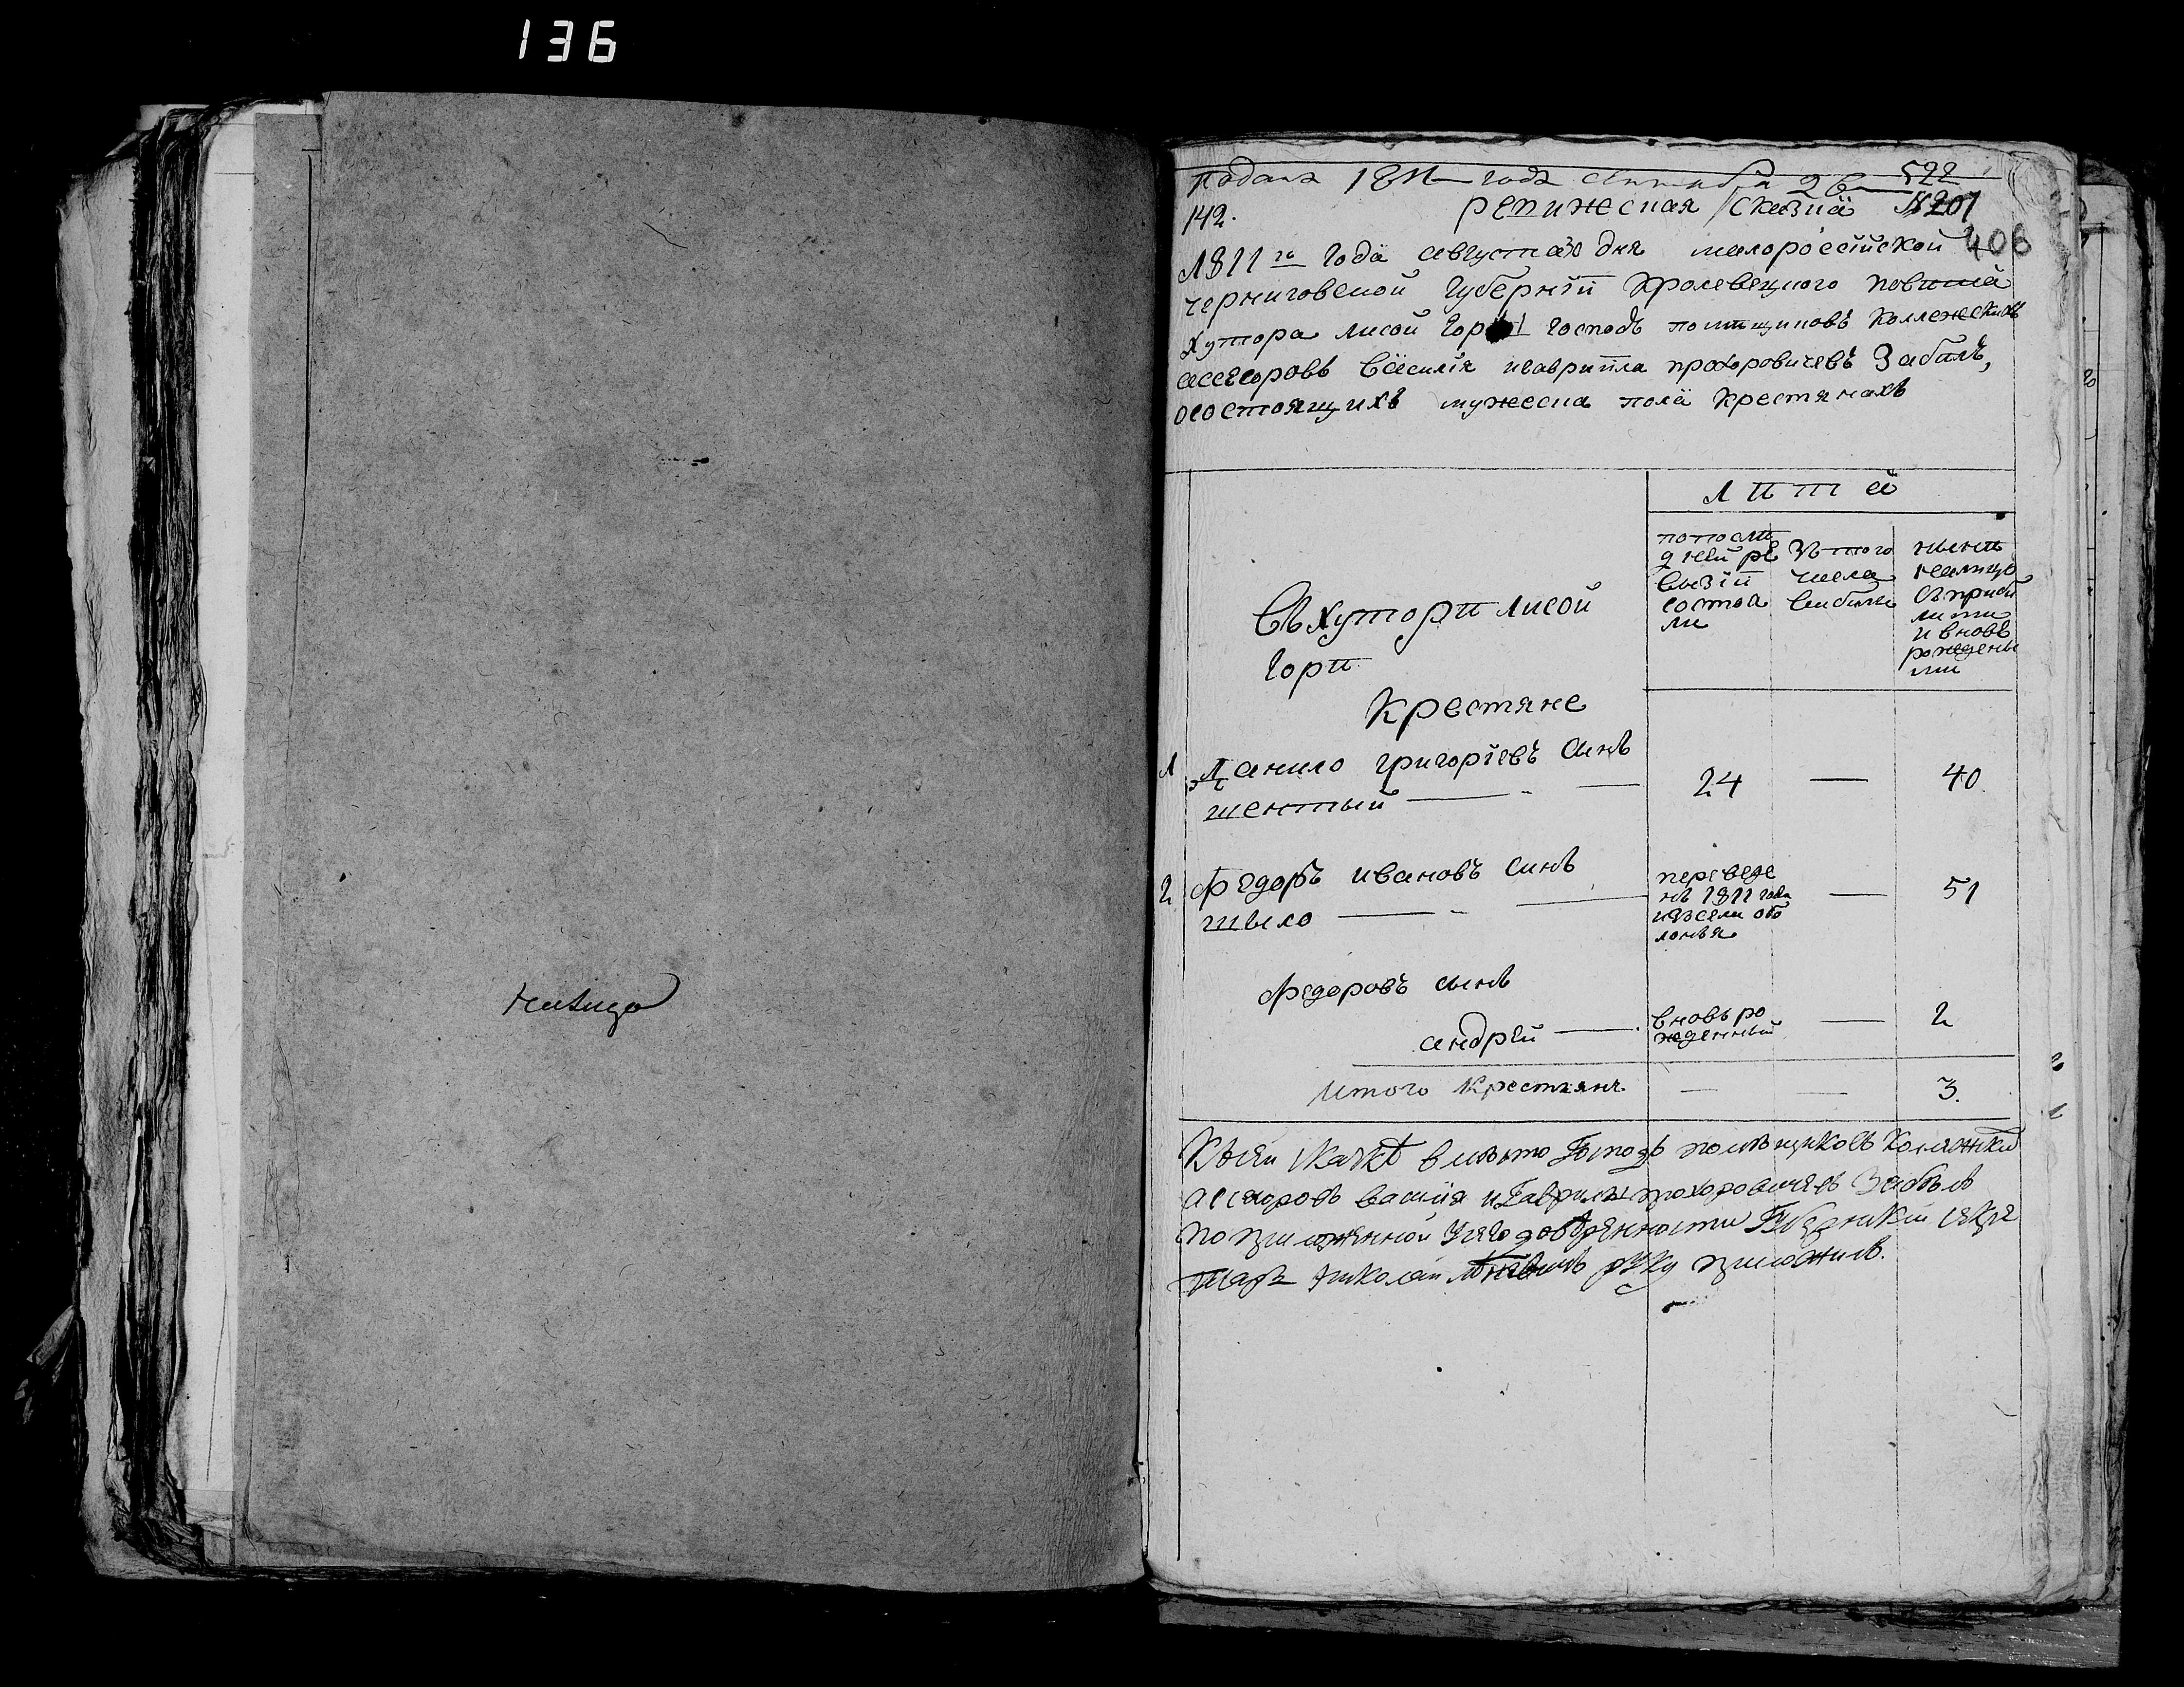 136
подана 1811 года сентября 26 522
142. ревижеская сказка №201
406
1811го года августа 30 дня малороссійской
черниговской губерніи кролевецкого повѣта
хутора лисой горы господъ помѣщиковъ коллежскихъ
асессоровъ василія игаврііла прохоровичевъ Забѣлъ,
осостоящихъ мужеска пола крестянахъ
лѣта
попослѣ
дней ре
визіи
состоя
ли
Зътого
числа
выбыли
нынѣ
налице
съприбы
лыми
и вновь
рожденны
ми
Въхуторѣ лисой
горѣ
Крестяне
1 Данило григоріевъ сынъ
шентый — 24 — 40
2 Федоръ ивановъ синъ
шыло — переведе
нъ 1811 года
изъсела обо
лонья — 51
Федоровъ сынъ
андрей — вновь ро
жденный — 2
Итого крестянъ — — 3.
Ксей скаскѣ вместо Господъ помѣщиковъ колежски
асесоровъ василія иГаврилы прохоровичевъ Забѣлъ
по приложенной довѣренности Губернский секре
таръ Николай руку приложилъ.